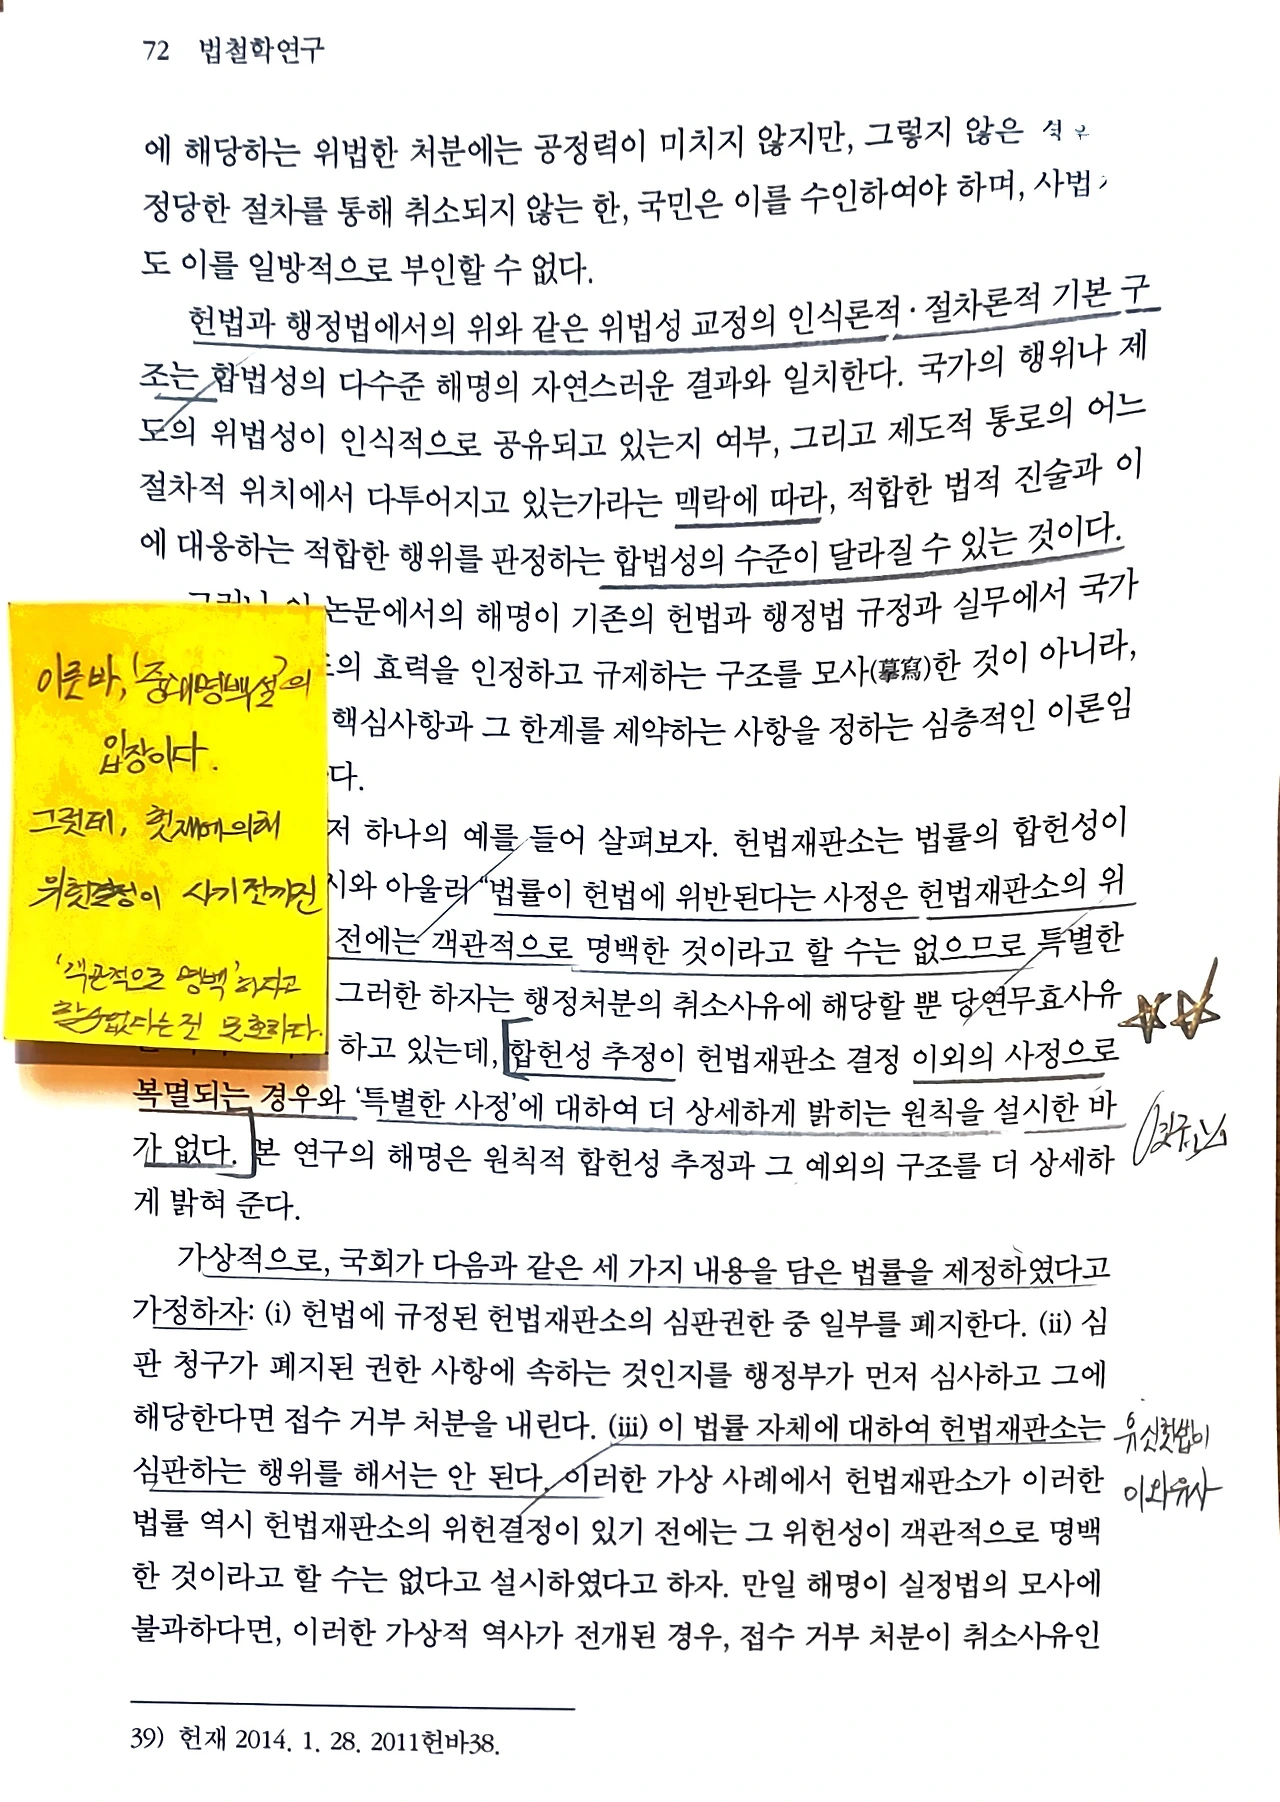 72 법철학연구
에 해당하는 위법한 처분에는 공정력이 미치지 않지만, 그렇지 않은 경우
정당한 절차를 통해 취소되지 않는 한, 국민은 이를 수인하여야 하며, 사법
도 이를 일방적으로 부인할 수 없다.
헌법과 행정법에서의 위와 같은 위법성 교정의 인식론적·절차론적 기본 구
조는 합법성의 다수준 해명의 자연스러운 결과와 일치한다. 국가의 행위나 제
도의 위법성이 인식적으로 공유되고 있는지 여부, 그리고 제도적 통로의 어느
절차적 위치에서 다투어지고 있는가라는 맥락에 따라, 적합한 법적 진술과 이
에 대응하는 적합한 행위를 판정하는 합법성의 수준이 달라질 수 있는 것이다.
논문에서의 해명이 기존의 헌법과 행정법 규정과 실무에서 국가
의 효력을 인정하고 규제하는 구조를 모사(摹寫)한 것이 아니라,
핵심사항과 그 한계를 제약하는 사항을 정하는 심층적인 이론임
다.
저 하나의 예를 들어 살펴보자. 헌법재판소는 법률의 합헌성이
시와 아울러 “법률이 헌법에 위반된다는 사정은 헌법재판소의 위
전에는 객관적으로 명백한 것이라고 할 수는 없으므로 특별한
그러한 하자는 행정처분의 취소사유에 해당할 뿐 당연무효사유
하고 있는데, 합헌성 추정이 헌법재판소 결정 이외의 사정으로
복멸되는 경우와 ‘특별한 사정’에 대하여 더 상세하게 밝히는 원칙을 설시한 바
가 없다. 본 연구의 해명은 원칙적 합헌성 추정과 그 예외의 구조를 더 상세하
게 밝혀 준다.
가상적으로, 국회가 다음과 같은 세 가지 내용을 담은 법률을 제정하였다고
가정하자: (i) 헌법에 규정된 헌법재판소의 심판권한 중 일부를 폐지한다. (ii) 심
판 청구가 폐지된 권한 사항에 속하는 것인지를 행정부가 먼저 심사하고 그에
해당한다면 접수 거부 처분을 내린다. (iii) 이 법률 자체에 대하여 헌법재판소는
심판하는 행위를 해서는 안 된다. 이러한 가상 사례에서 헌법재판소가 이러한
법률 역시 헌법재판소의 위헌결정이 있기 전에는 그 위헌성이 객관적으로 명백
한 것이라고 할 수는 없다고 설시하였다고 하자. 만일 해명이 실정법의 모사에
불과하다면, 이러한 가상적 역사가 전개된 경우, 접수 거부 처분이 취소사유인
39) 헌재 2014. 1. 28. 2011헌바38.
이른바, ‘중대명백설’의
입장이다.
그런데, 헌재에 의해
위헌결정이 나기 전까진
‘객관적으로 명백’하다고
할 수 없다는 건 모호하다.
유신헌법이
이와 유사